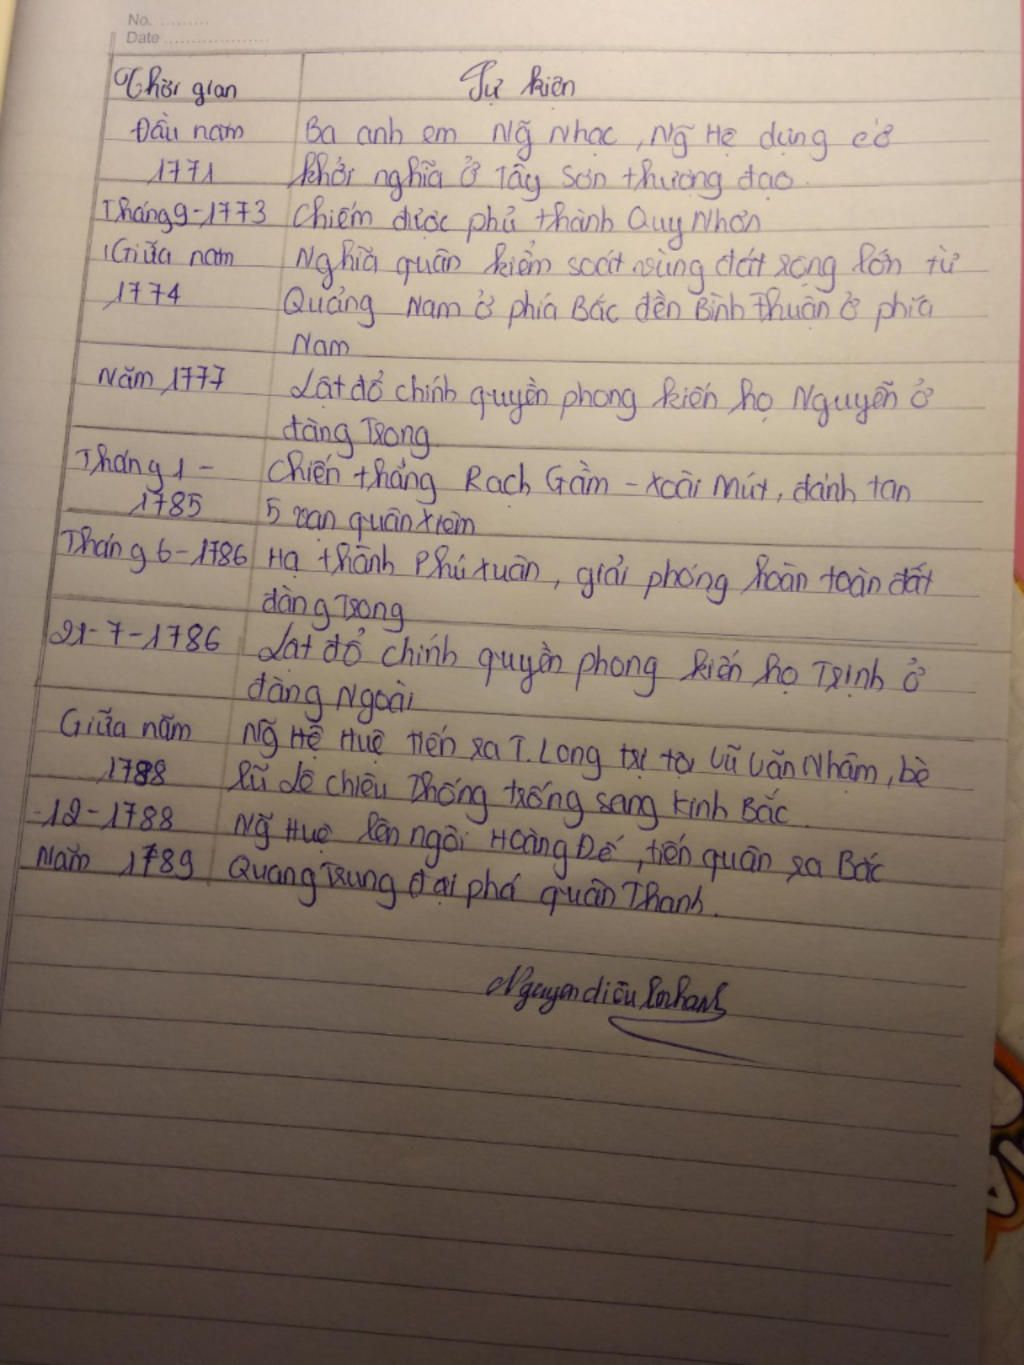 No. .........
Date ...................
Thời gian Sự kiện
Đầu năm Ba anh em Ng̃ Nhạc, Ng̃ Hệ dựng cờ
1771 khởi nghĩa ở Tây Sơn thượng đạo.
Tháng 9-1773 Chiếm được phủ thành Quy Nhơn
Giữa nam Nghĩa quân kiểm soát vùng đất rộng lớn từ
1774 Quảng Nam ở phía Bắc đến Bình Thuận ở phía
Nam
Năm 1777 Lật đổ chính quyền phong kiến họ Nguyễn ở
đàng Trong
Tháng 1 - Chiến thắng Rạch Gầm - Xoài Mút, đánh tan
1785 5 vạn quân Xiêm
Tháng 6-1786 Hạ thành Phú Xuân, giải phóng hoàn toàn đất
đàng Trong
21-7-1786 Lật đổ chính quyền phong kiến họ Trịnh ở
đàng Ngoài
Giữa năm Ng̃ Hệ Huệ tiến ra T. Long trị tội Vũ Văn Nhậm, bè
1788 lũ Lê Chiêu Thống trốn sang Kinh Bắc.
12-1788 Ng̃ Huệ lên ngôi Hoàng Đế, tiến quân ra Bắc
Năm 1789 Quang Trung đại phá quân Thanh.